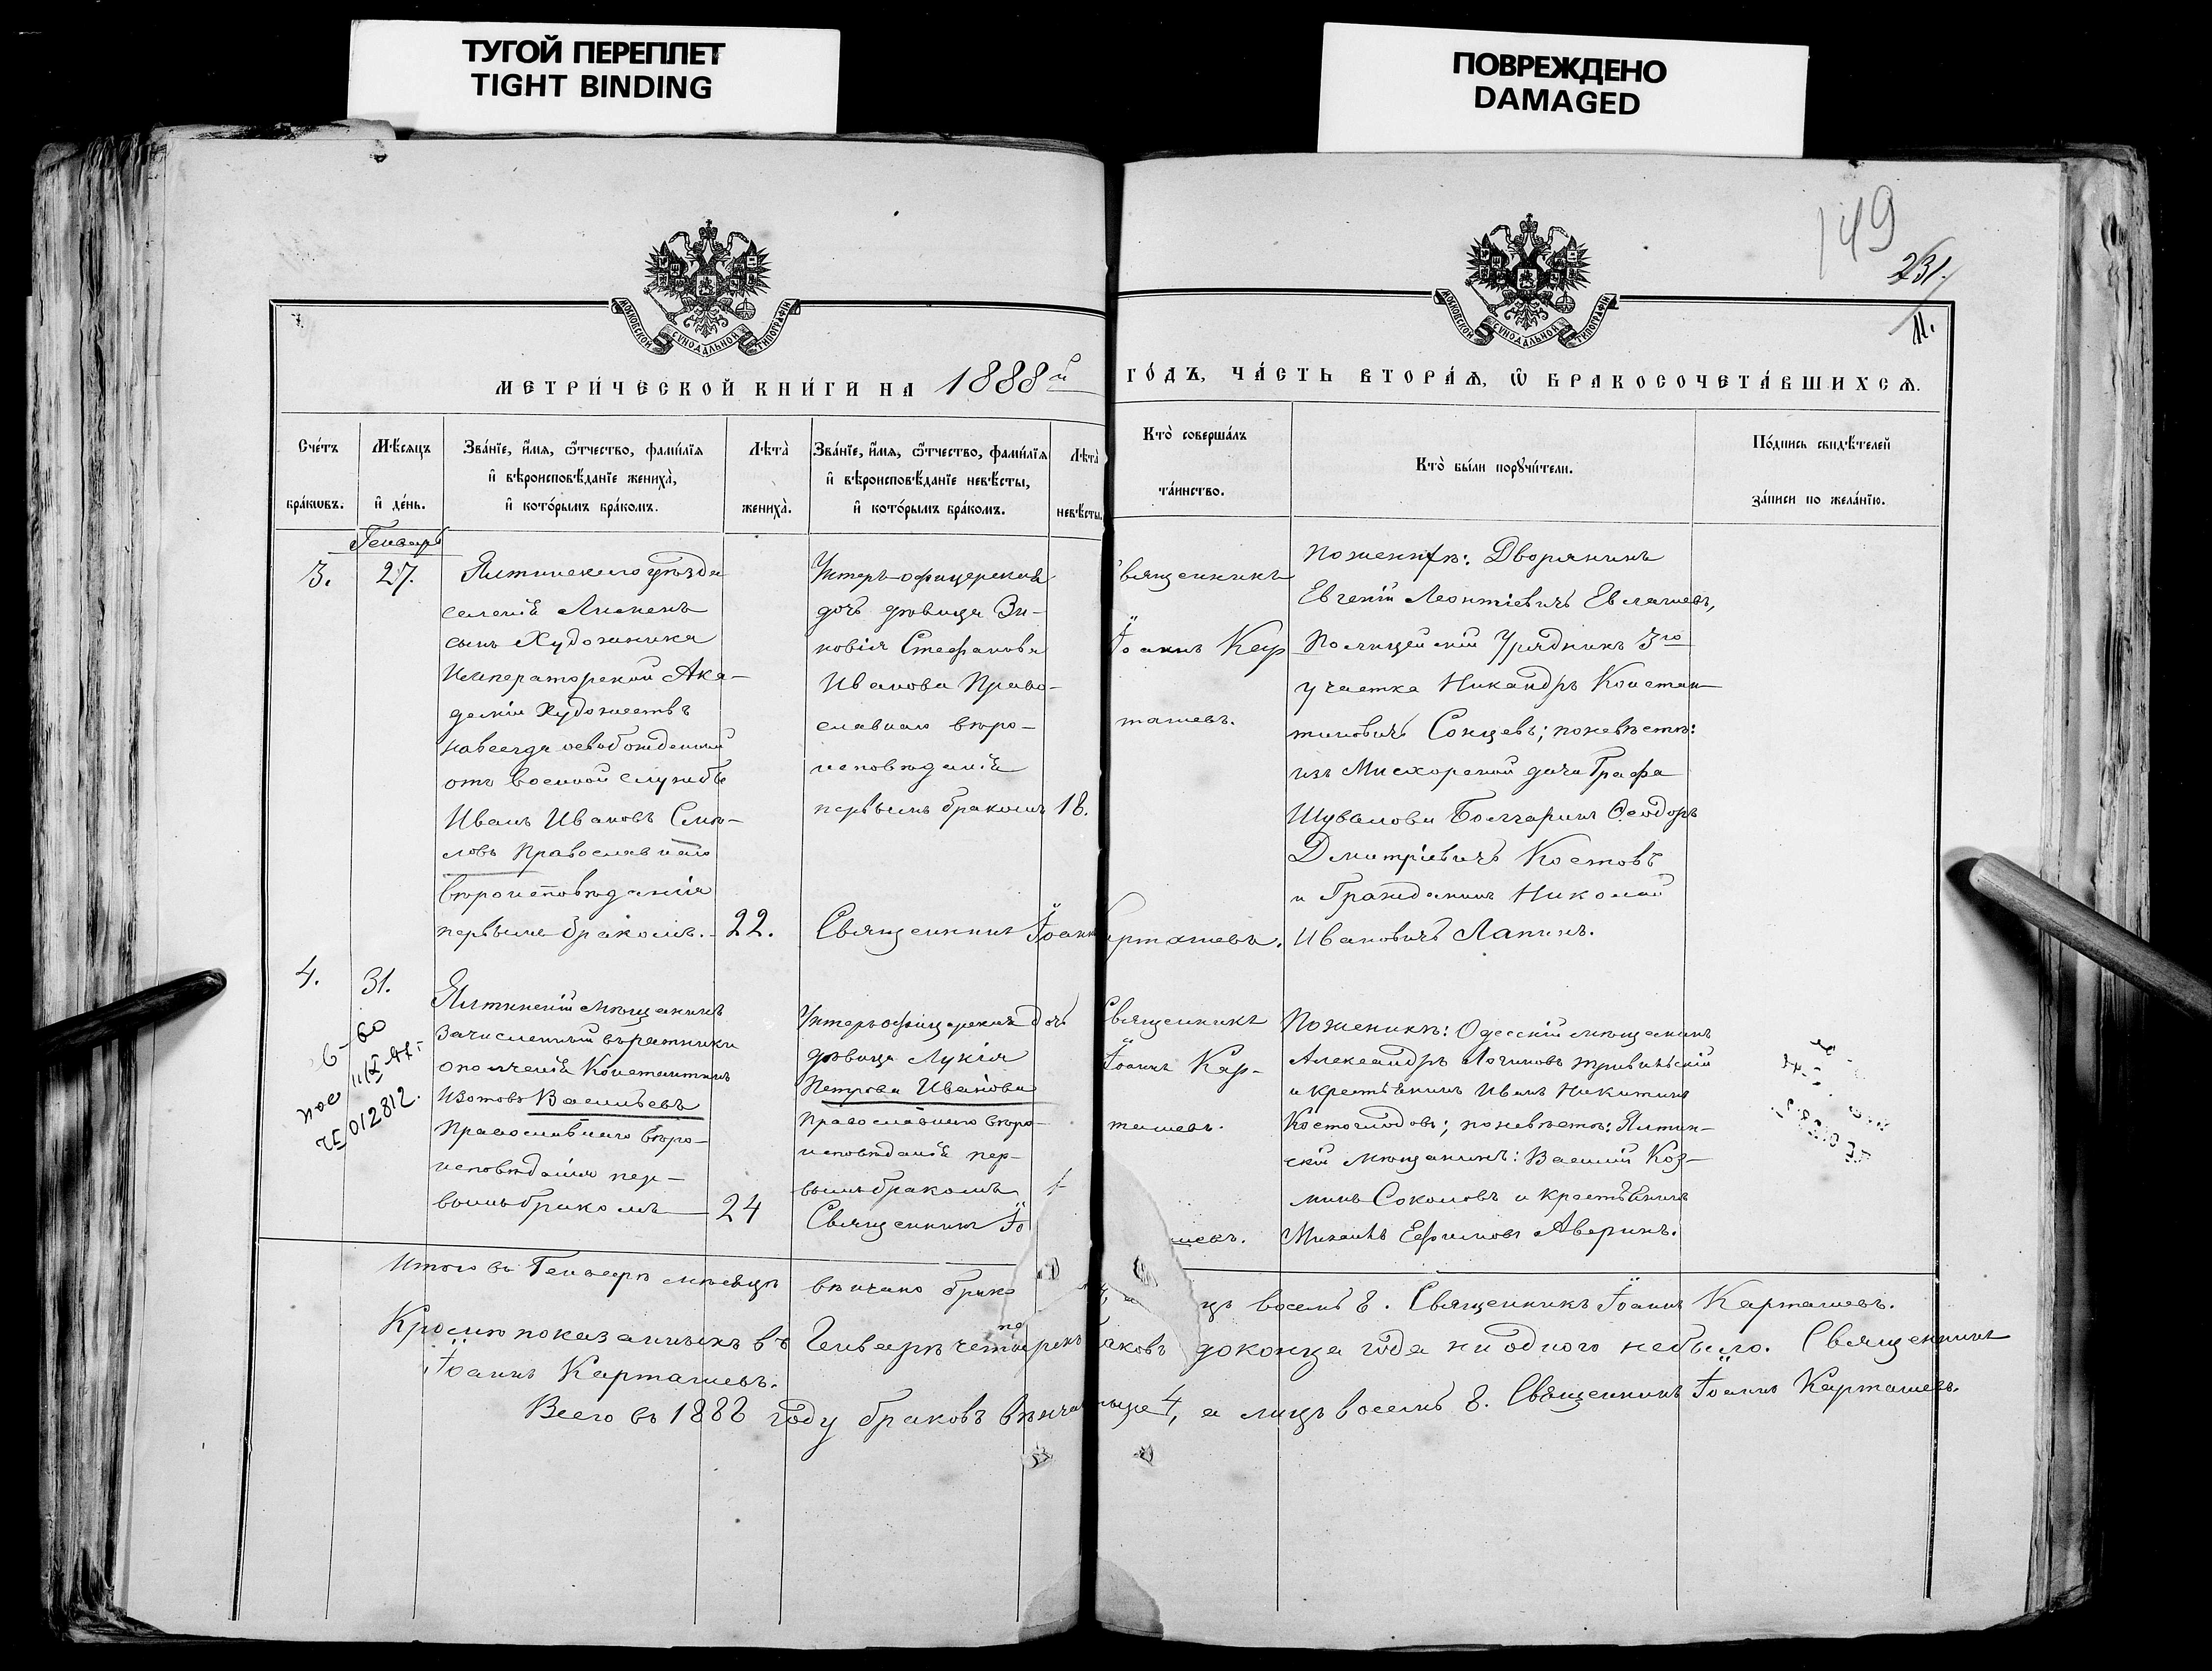 ТУГОЙ ПЕРЕПЛЕТ
TIGHT BINDING
ПОВРЕЖДЕНО
DAMAGED
149
231.
11.
МОСКОВСКОЙ СѴНОДАЛЬНОЙ ТИПОГРАФІИ
МОСКОВСКОЙ СѴНОДАЛЬНОЙ ТИПОГРАФІИ
МЕТРИ́ЧЕСКОЙ КНИ́ГИ НА 1888й
ГО́ДЪ, ЧА́СТЬ ВТОРА́Ѧ, Ѽ БРАКОСОЧЕТА́ВШИХСѦ.
Сче́тъ
бра́кѡвъ.
Мѣ́сѧцъ
и҆ де́нь.
Зва́нїе, и҆́мѧ, ѻ҆́тчество, фами́лїѧ
и҆ вѣроисповѣ́данїе жениха̀,
и҆ кото́рымъ бра́комъ.
Лѣта̀
жениха̀.
Зва́нїе, и҆́мѧ, ѻ҆́тчество, фами́лїѧ
и҆ вѣроисповѣ́данїе невѣ́сты,
и҆ кото́рымъ бра́комъ.
Лѣта̀
невѣ́сты.
Кто̀ соверша́лъ
та́инство.
Кто̀ бы́ли порꙋчи́тели.
По́дпись свидѣ́телей
за́писи по жела́нїю.
Генварь
3.
27.
Ялтинскаго уѣзда
селенія Лименъ
сынъ Художника
Императорской Ака-
деміи Художествъ
навсегда освобожденный
отъ военной службы
Иванъ Ивановъ
Православнаго
вѣроисповѣданія
первымъ бракомъ.
22.
Унтеръ-офицерская
дочь дѣвица Зи-
новія Стефанова
Иванова Право-
славнаго вѣро-
исповѣданія
первымъ бракомъ
18.
Священникъ Іоаннъ Карташевъ.
Священникъ
Іоаннъ Кар
ташевъ.
По женихѣ: Дворянинъ
Евгеній Леонтіевичъ
Полицейскій Урядникъ 3го
участка Никандръ Констан-
тиновичъ Сонцевъ; по невѣстѣ:
изъ Мисхорской дачи Графа
Шувалова Болгаринъ Ѳеодоръ
Дмитріевичъ Костовъ
и Гражданинъ Николай
Ивановичъ Лапинъ.
4.
31.
Ялтинскій мѣщанинъ
зачисленный въ ратники
ополченія Константинъ
Изотовъ Васильевъ
Православнаго вѣро-
исповѣданія пер-
вымъ бракомъ
24
Унтеръ-офицерская дочь
дѣвица Лукія
Петрова Иванова
Православнаго вѣро-
исповѣданія пер-
вымъ бракомъ
Священникъ Іо
шевъ.
Священникъ
Іоаннъ Кар-
ташевъ.
По женихѣ: Одесскій мѣщанинъ
Александръ
и крестьянинъ Иванъ Никитинъ
по невѣстѣ: Ялтин-
скій мѣщанинъ: Василій Коз-
минъ Соколовъ и крестьянинъ
Михаилъ Ефимовъ Аверинъ.
012812.
Итого въ Генварѣ мѣсяцѣ вѣнчано брако
цъ восемь 8. Священникъ Іоаннъ Карташевъ.
Кромѣ показанныхъ въ Генварѣ четырехъ браковъ до конца года ни одного не было. Священникъ
Іоаннъ Карташевъ.
Всего въ 1888 году браковъ вѣнчано 4, а лицъ восемь 8. Священникъ Іоаннъ Карташевъ.